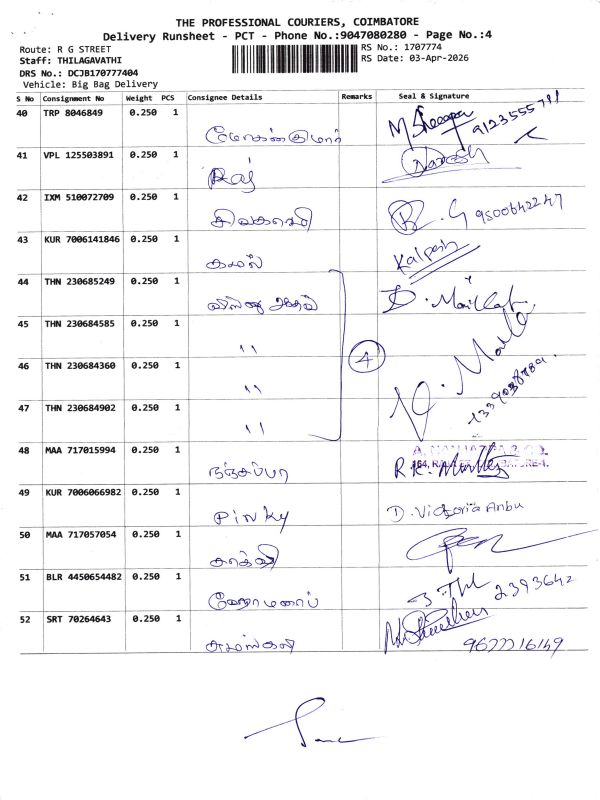 THE PROFESSIONAL COURIERS, COIMBATORE
Delivery Runsheet - PCT - Phone No.:9047080280 - Page No.:4
Route: R G STREET
RS No.: 1707774
Staff: THILAGAVATHI
RS Date: 03-Apr-2026
DRS No.: DCJB170777404
Vehicle: Big Bag Delivery
S No Consignment No Weight PCS Consignee Details Remarks Seal & Signature
40 TRP 8046849 0.250 1
9123555791
41 VPL 125503891 0.250 1
Raj Naresh
42 IXM 510072709 0.250 1
சிவகாமி R. G 9500642247
43 KUR 7006141846 0.250 1
கமல் Kalpesh
44 THN 230685249 0.250 1
45 THN 230684585 0.250 1
" 4
46 THN 230684360 0.250 1
"
47 THN 230684902 0.250 1
"
48 MAA 717015994 0.250 1
நஞ்சப்பா R.K.
49 KUR 7006066982 0.250 1
Pinky D. Victoria Anbu
50 MAA 717057054 0.250 1
51 BLR 4450654482 0.250 1
2393642
52 SRT 70264643 0.250 1
9677716149